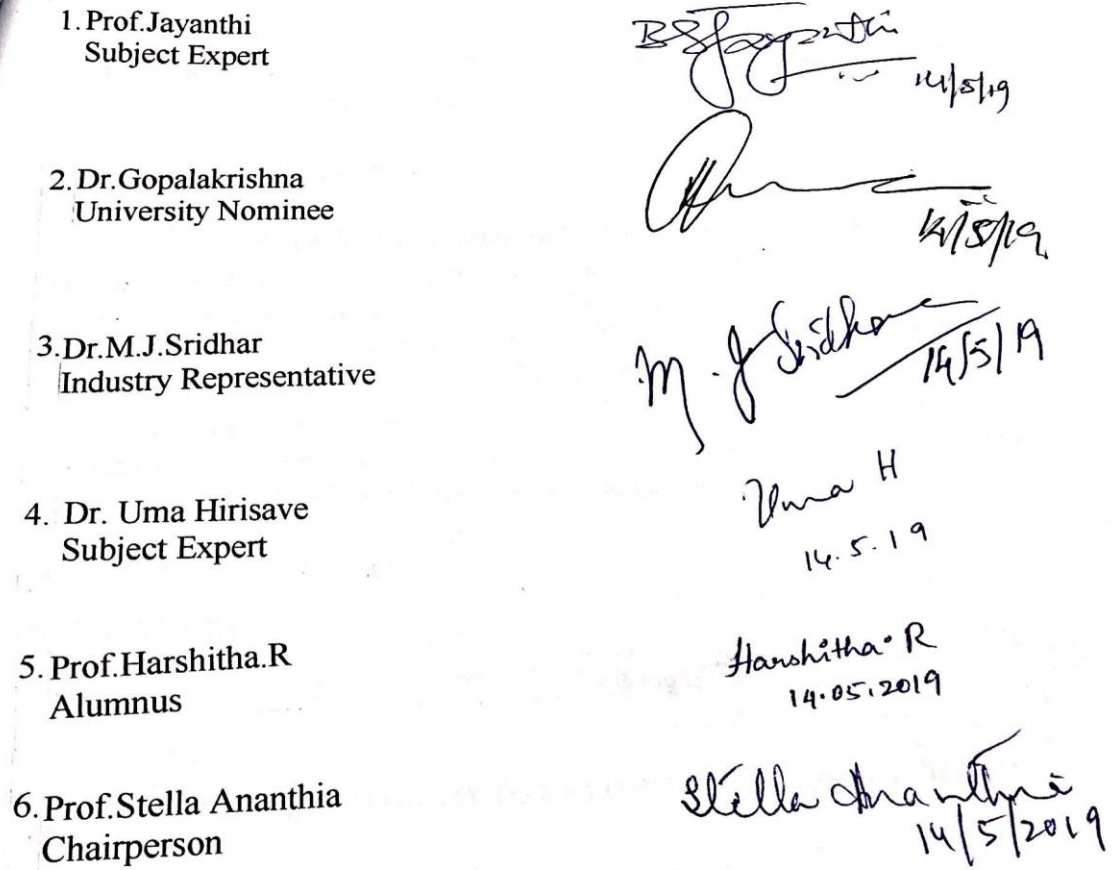 1. Prof.Jayanthi
Subject Expert
BSJayanthi
14/5/19
2. Dr.Gopalakrishna
University Nominee
14/5/19
3. Dr.M.J.Sridhar
Industry Representative
M. J Sridhar
14/5/19
4. Dr. Uma Hirisave
Subject Expert
Uma H
14.5.19
5. Prof.Harshitha.R
Alumnus
Harshitha. R
14.05.2019
6. Prof.Stella Ananthia
Chairperson
Stella Ananthia
14/5/2019